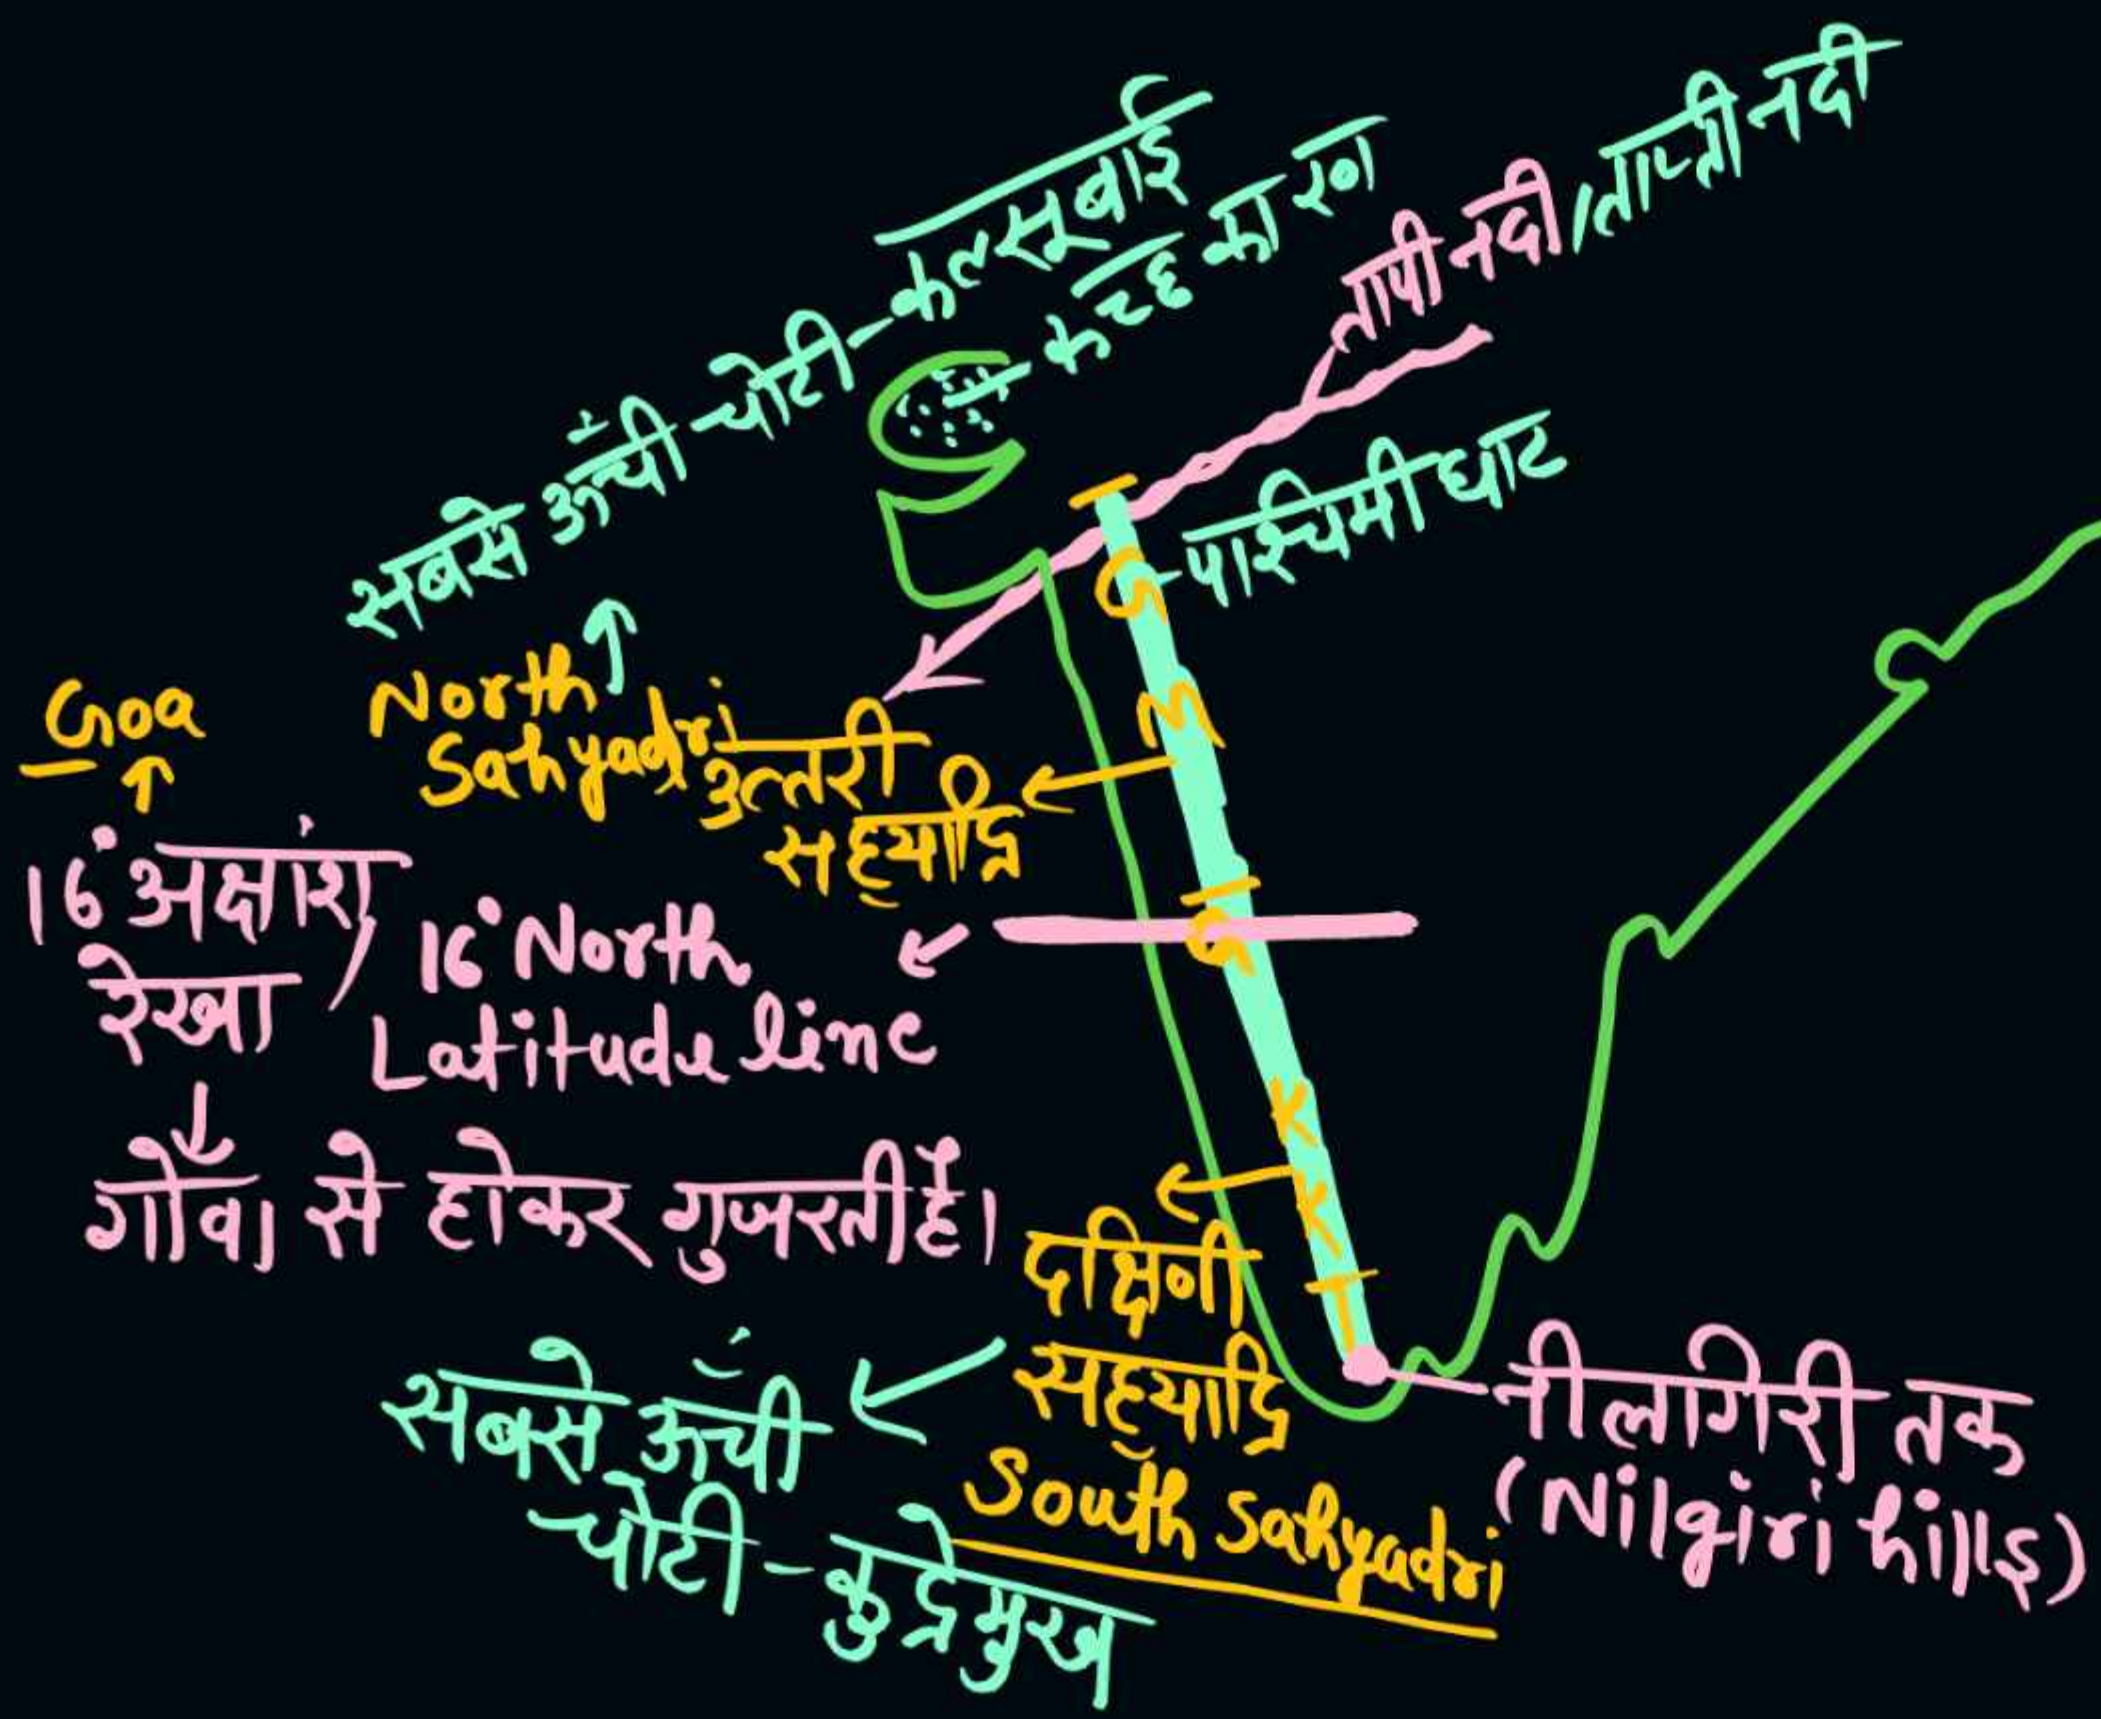 सबसे ऊँची चोटी - कलसूबाई
कच्छ का रण
तापी नदी / ताप्ती नदी
पाश्चिमी घाट
G
M
G
K
K
T
North
Sahyadri
उत्तरी
सह्याद्रि
Goa
16° अक्षांश
रेखा
16° North
Latitude line
गोवा से होकर गुजरती है।
दक्षिणी
सह्याद्रि
South Sahyadri
सबसे ऊँची
चोटी - कुद्रेमुख
नीलगिरी तक
(Nilgiri hills)